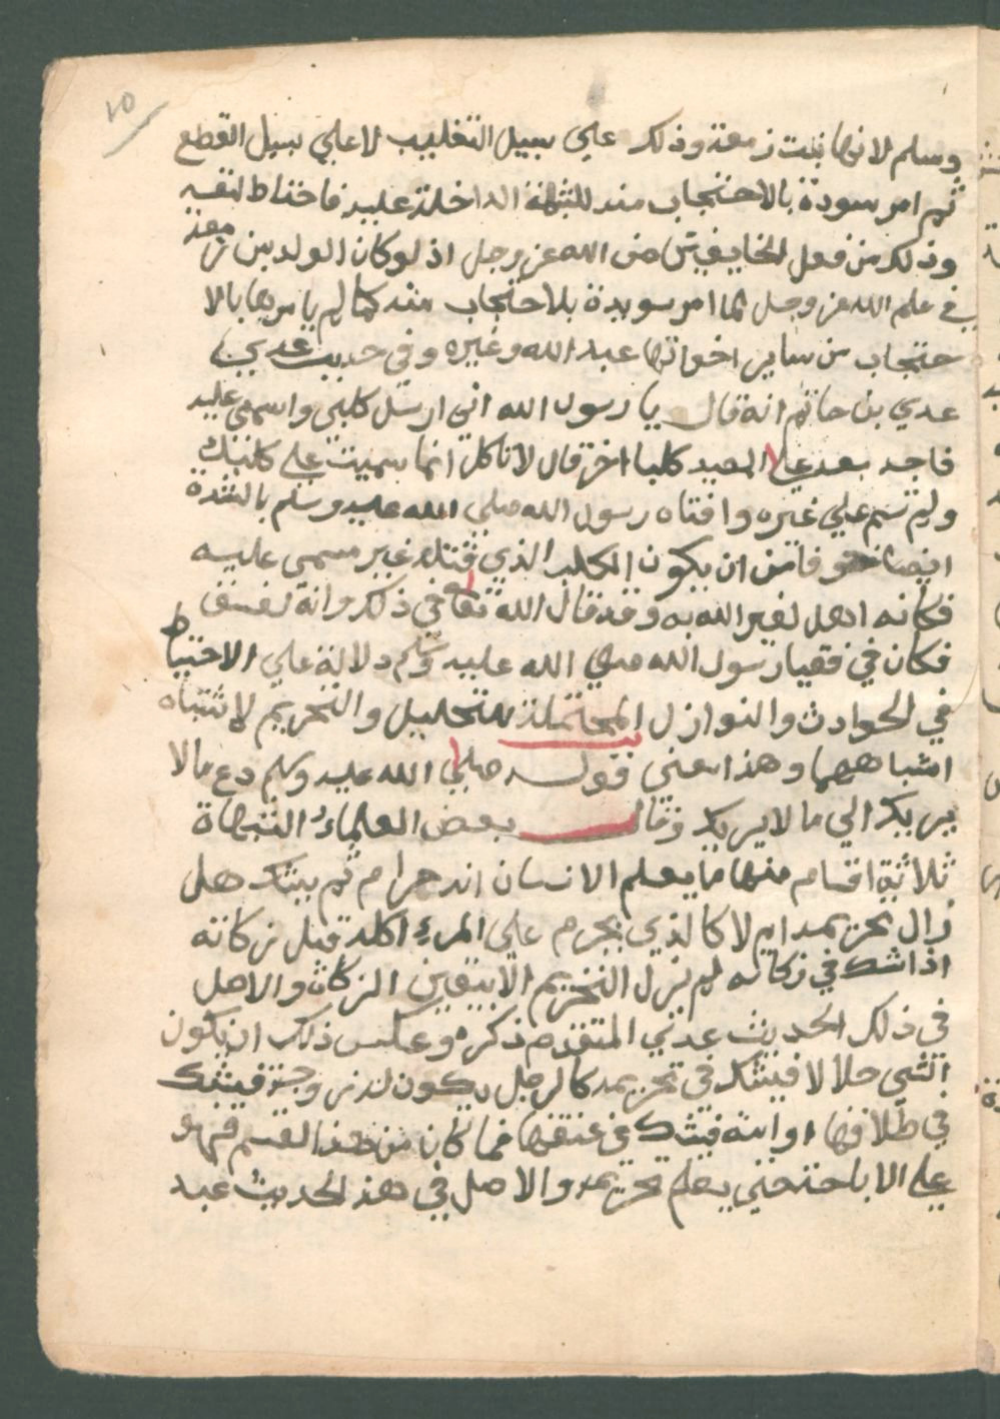 ٢٥
وسلم لانها بنت زمعة وذلك علي سبيل التغليب لا علي سبيل القطع
ثم امر سودة بالاحتجاب منه للشبهة الداخلة عليه فاحتاط لنفسه
وذلك من فعل الخايفين من الله عز وجل اذ لو كان الولد بن زمعة
في علم الله عز وجل لما امر سودة بالاحتجاب منه كما لم يامرها بالا
حتجاب من ساير اخواتها عبد الله وغيره وفي حديث عدي
عدي بن حاتم انه قال يا رسول الله اني ارسل كلبي واسمي عليه
فاجد معه علي الصيد كلبا اخر قال لا تاكل انما سميت علي كلبك
ولم تسم علي غيره وافتاه رسول الله صلي الله عليه وسلم بالشدة
ايضا خوفا من ان يكون الكلب الذي قتله غير مسمى عليه
فكانه اهل لغير الله به وقد قال الله تعا في ذلك وانه لفسق
فكان في فتيا رسول الله صلي الله عليه وسلم دلالة علي الاحتياط
في الحوادث والنوازل المحتملة للتحليل والتحريم لاشتباه
اشباههما وهذا معني قوله صلي الله عليه وسلم دع ما لا
يريبك الي ما لا يريبك وقال بعض العلماء الشبهاة
ثلاثة اقسام منها ما يعلم الانسان انه حرام ثم يشك هل
زال تحريمه ام لا كالذي يحرم علي المرء اكله قبل زكاته
اذا شك في زكاته لم تزل التحريم الا بيقين الزكاة والاصل
في ذلك الحديث عدي المتقدم ذكره وعكس ذلك ان يكون
الشي حلالا فيشك في تحريمه كالرجل يكون له زوجة فيشك
في طلاقها او امة فيشك في عتقها فما كان من هذا القسم فهو
علي الاباحة حتي يعلم تحريمه والاصل في هذا الحديث عبد